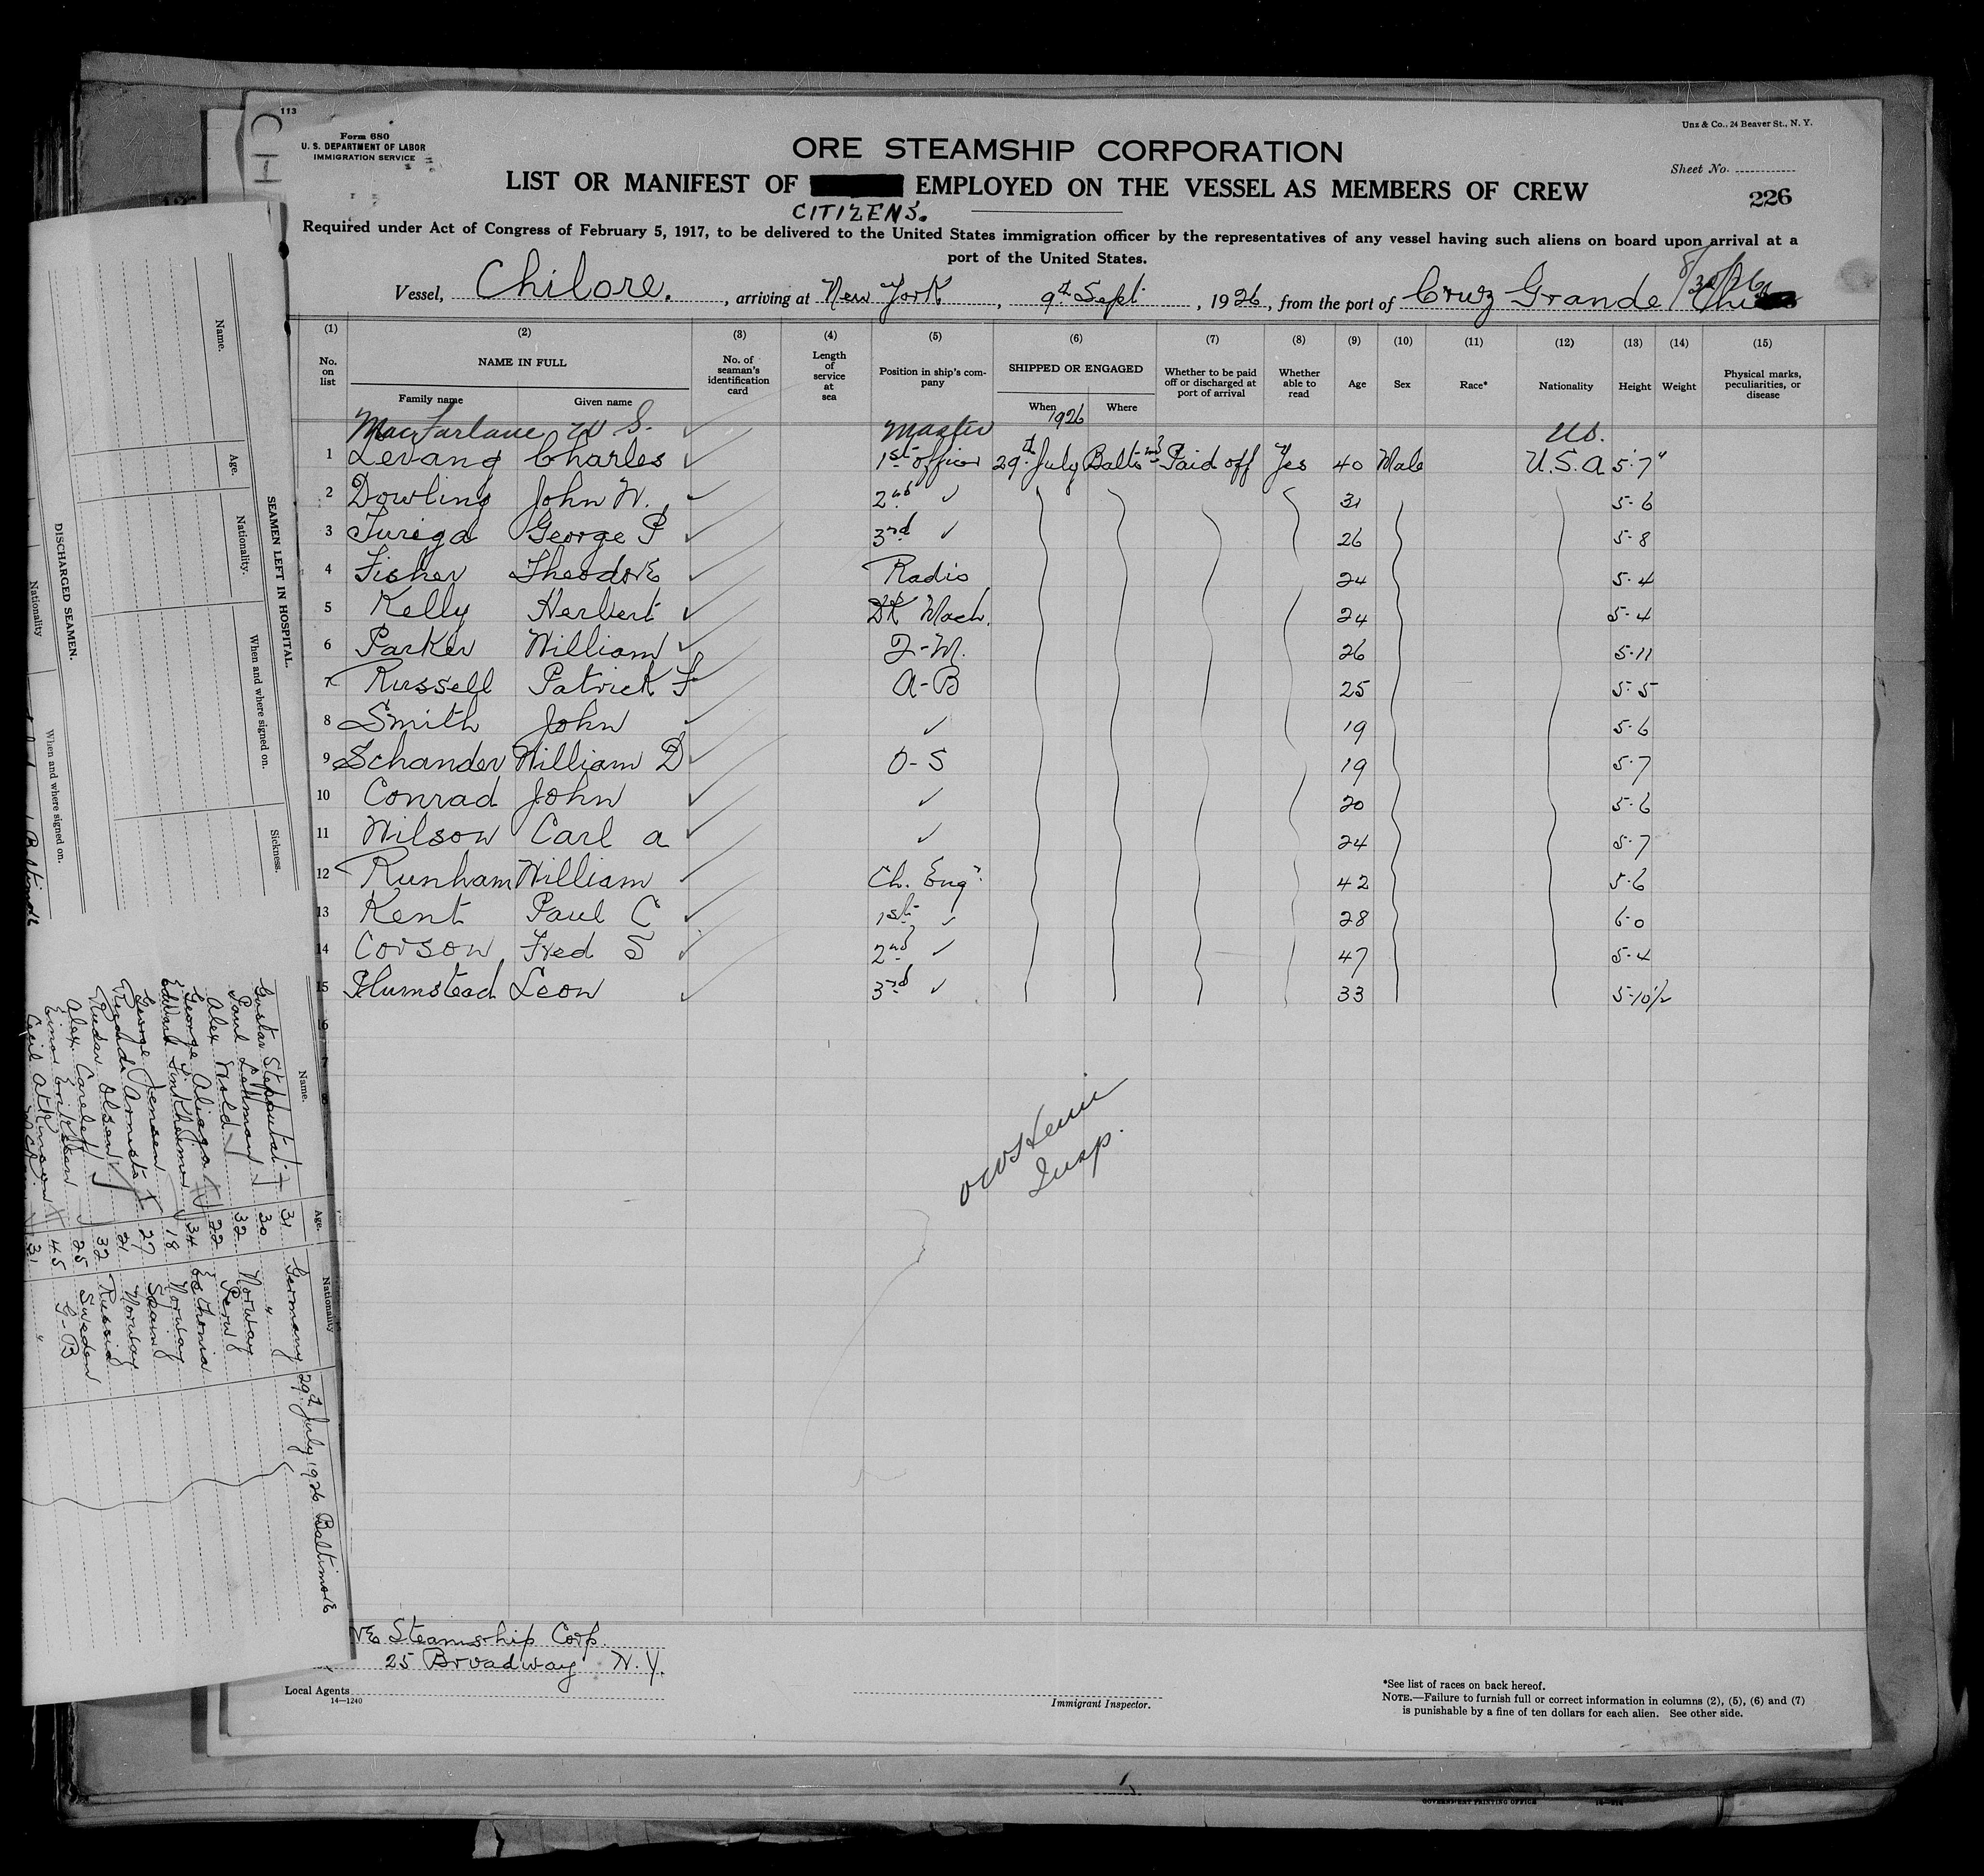 113
Form 680
U. S. DEPARTMENT OF LABOR
IMMIGRATION SERVICE
Unz & Co., 24 Beaver St., N. Y.
ORE STEAMSHIP CORPORATION
Sheet No.
LIST OR MANIFEST OF EMPLOYED ON THE VESSEL AS MEMBERS OF CREW
226
CITIZENS.
Required under Act of Congress of February 5, 1917, to be delivered to the United States immigration officer by the representatives of any vessel having such aliens on board upon arrival at a
port of the United States.
8/30/26
Vessel, Chilore. , arriving at New York , 9th Sept , 1926, from the port of Cruz Grande
(1) (2) (3) (4) (5) (6) (7) (8) (9) (10) (11) (12) (13) (14) (15)
No. on list NAME IN FULL No. of seaman's identification card Length of service at sea Position in ship's company SHIPPED OR ENGAGED Whether to be paid off or discharged at port of arrival Whether able to read Age Sex Race* Nationality Height Weight Physical marks, peculiarities, or disease
Family name Given name When Where
1926
MacFarlane W S. Master U.S.
1 Levang Charles 1st officer 29th July Balto Md Paid off Yes 40 Male U.S.A 5'7"
2 Dowling John W. 2nd ✓ 31 5-6
3 Turiga George P 3rd ✓ 26 5-8
4 Fisher Theodore Radio 24 5-4
5 Kelly Herbert DK Mach. 24 5-4
6 Parker William Q-M. 26 5-11
7 Russell Patrick F A-B 25 5-5
8 Smith John ✓ 19 5-6
9 Schander William D O-S 19 5-7
10 Conrad John ✓ 20 5-6
11 Wilson Carl a ✓ 24 5-7
12 Runham William Ch. Engr. 42 5-6
13 Kent Paul C 1st ✓ 28 6-0
14 Corson Fred S 2nd ✓ 47 5-4
15 Plumstead Leon 3rd ✓ 33 5-10½
16
Insp.
Steamship Corp.
25 Broadway N.Y.
Local Agents
14—1240
Immigrant Inspector.
*See list of races on back hereof.
NOTE.—Failure to furnish full or correct information in columns (2), (5), (6) and (7)
is punishable by a fine of ten dollars for each alien. See other side.
GOVERNMENT PRINTING OFFICE
SEAMEN LEFT IN HOSPITAL.
Name. Age. Nationality. When and where signed on. Sickness.
DISCHARGED SEAMEN.
Nationality When and where signed on.
Name. Age. Nationality
31 Germany 29th July 1926 Baltimore
Paul Lehmann 30 "
Alex Wold 32 Norway
George Aliaga 22 Peru
34 Esthonia
George Jensen 18 Norway
27 Spain
Olsen 21 Norway
32 Russia
Einar Eriksen 25 Sweden
Cecil Atkinson 45 G-B
31 "